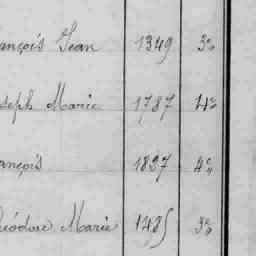 ançois Jean 1349 3e
seph Marie 1787 4e
ançois 1837 4e
éodore Marie 1485 3e